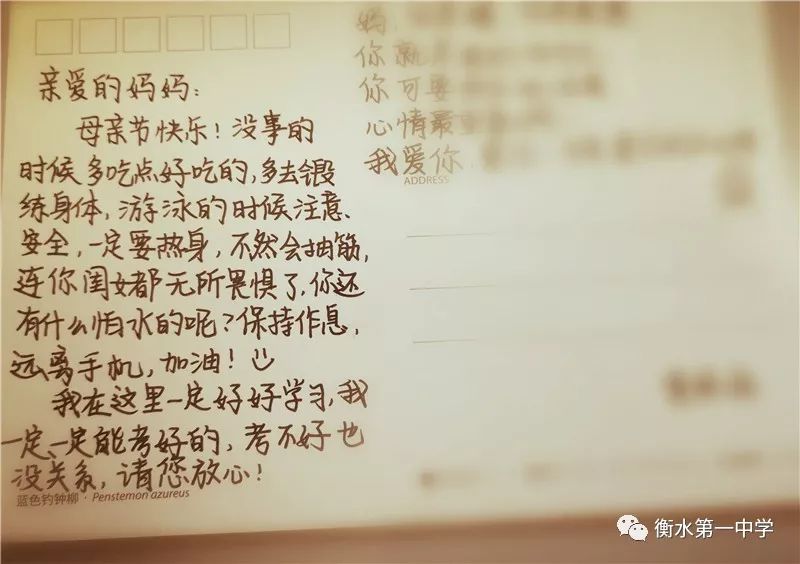 亲爱的妈妈:
母亲节快乐!没事的
时候多吃点好吃的,多去锻
练身体,游泳的时候注意、
安全,一定要热身,不然会抽筋,
连你闺女都无所畏惧了,你还
有什么怕水的呢?保持作息,
远离手机,加油!
我在这里一定好好学习,我
一定、一定能考好的,考不好也
没关系,请您放心!
蓝色钓钟柳·Penstemon azureus
妈
你就
你可要
心情最
我爱你
ADDRESS
衡水第一中学